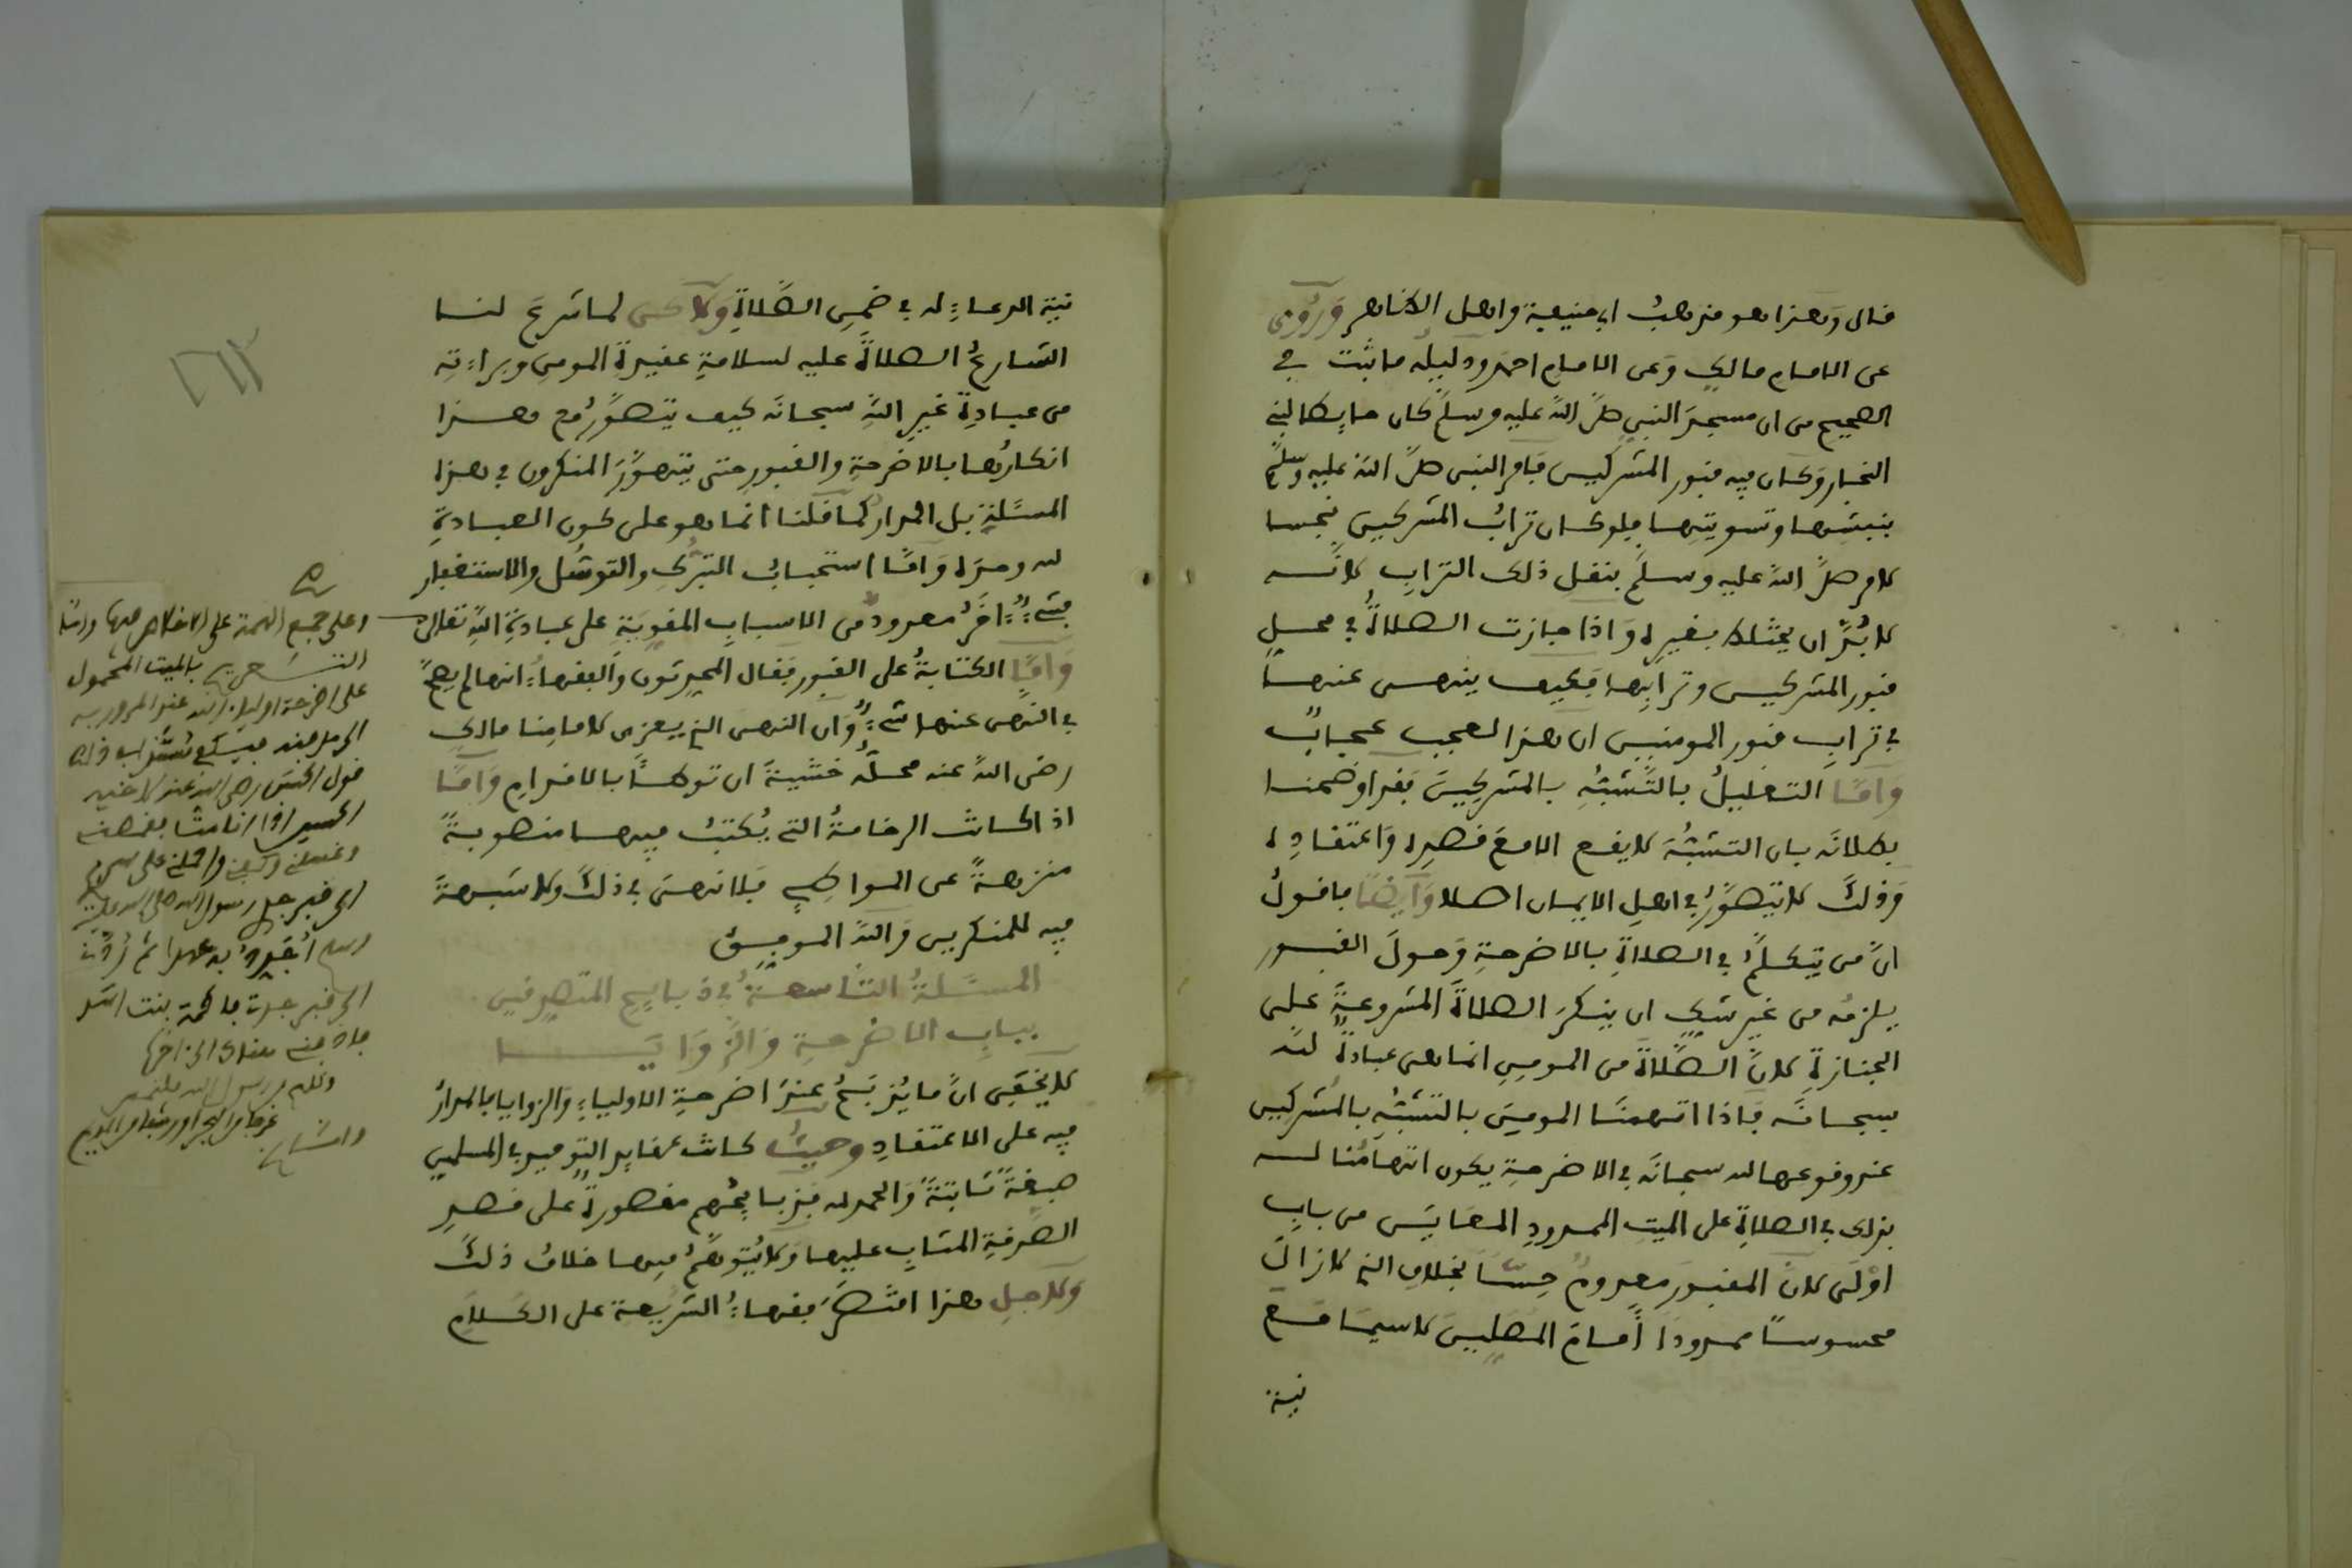 قال وهذا هو مذهب ابي حنيفة واهل الظاهر وروي
عن الامام مالك وعن الامام احمد ودليله ما ثبت في
الصحيح من ان مسجد النبي صلى الله عليه وسلم كان حايطا لبني
النجار وكان فيه قبور المشركين فامر النبي صلى الله عليه وسلم
بنبشها وتسويتها فلو كان تراب المشركين نجسا
لامر صلى الله عليه وسلم بنقل ذلك التراب لانه
لابد ان يختلط بغيره واذا جازت الصلاة في محل
قبور المشركين وترابها فكيف ينهى عنها
في تراب قبور المومنين ان هذا لعجب عجاب
واما التعليل بالتشبه بالمشركين فقد اوضحنا
بطلانه بان التشبه لا يقع الا مع قصده واعتقاده
وذلك لا يتصور في اهل الايمان اصلا وايضا فاقول
ان من يتكلم في الصلاة بالاضرحة وحول القبور
يلزمه من غير شك ان ينكر الصلاة المشروعة على
الجنازة لان الصلاة من المومن انما هي عبادة لله
سبحانه فاذا اتهمنا المومن بالتشبه بالمشركين
عند وقوعها لله سبحانه في الاضرحة يكون اتهامنا له
بذلك في الصلاة على الميت الممدود المعاين من باب
اولى لان المقبور معدوم حسا بخلاف الذي لازال
محسوسا ممدودا امام المصلين لاسيما مع
نية
نية الدعاء له في ضمن الصلاة ولاكن لما شرع لنا
الشارع الصلاة عليه لسلامة عقيدة المومن وبراءته
من عبادة غير الله سبحانه كيف يتصور مع هذا
انكارها بالاضرحة والقبور حتى يتهور المنكرون في هذه
المسئلة بل المدار كما قلنا انما هو على كون العبادة
لله وحده واما استحباب التبرك والتوسل والاستغفار
فشيء اخر معدود من الاسباب المقوية على عبادة الله تعالى
واما الكتابة على القبور فقال المحدثون والفقهاء انها لم يصح
في النهي عنها شيء وان النهي الذي يعزى لامامنا مالك
رضي الله عنه محله خشية ان توطأ بالاقدام واما
اذا كانت الرخامة التي يكتب فيها منصوبة
منزهة عن المواطي فلا نهي في ذلك ولا شبهة
فيه للمنكرين والله الموفق
المسئلة التاسعة في ذبايح المتصرفين
بباب الاضرحة والزوايا
لا يخفى ان ما يذبح عند اضرحة الاولياء والزوايا بالمدار
فيه على الاعتقاد وحيث كانت عقايد التوحيد في المسلمين
صبغة ثابتة والحمد لله فذبايحهم مقصورة على قصد
الصدقة المثاب عليها ولا يتوهم فيها خلاف ذلك
ولاجل هذا اقتصر فقهاء الشريعة على الكلام
وعلى جمع الهمة على الاخلاص فيها واما
التعريج بالميت المحمول
على اضرحة اولياء الله عند المرور به
الى مدفنه فيكفي
قول الحسن رضي الله عنه لاخيه
الحسين اذا انا مت
وغسلني وكفني واحملني على سريري
الى قبر جدي رسول الله صلى الله عليه
وسلم اجدد به عهدا ثم ردني
الى قبر جدتي فاطمة بنت اسد
فادفني هناك